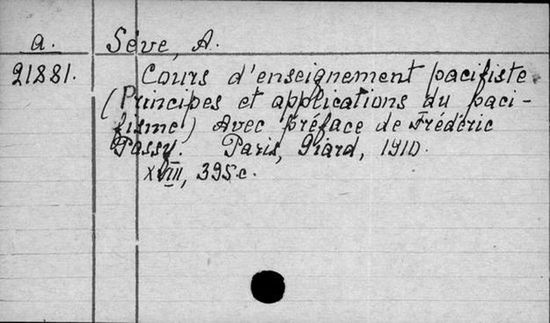 a. Sève, A.
21881. Cours d'enseignement pacifiste
(Principes et applications du paci-
fisme) Avec préface de Frédéric
Passy. Paris, Giard, 1910.
XVIII, 395 c.